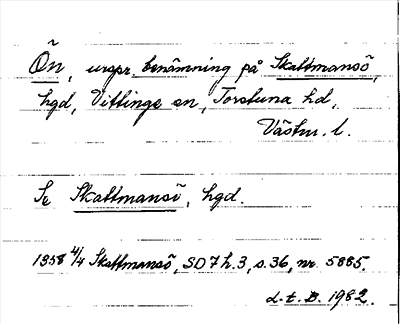 Ön, urspr. benämning på Skattmansö,
hgd, Vittinge sn, Torstuna hd,
Västm. l.
Se Skattmansö, hgd.
1358 4/4 Skattmansö, SD 7 h. 3, s. 36, nr. 5885.
L. t. B. 1982.